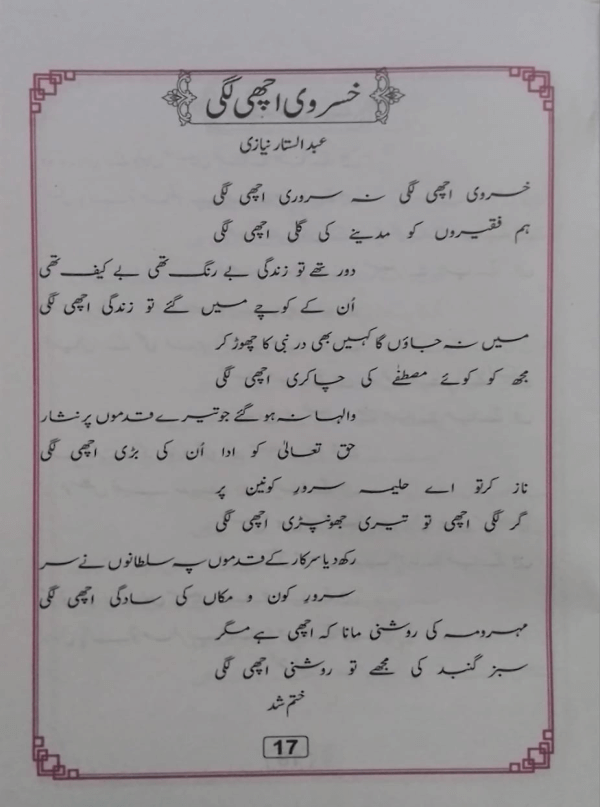 خسروی اچھی لگی
عبدالستار نیازی
خسروی اچھی لگی نہ سروری اچھی لگی
ہم فقیروں کو مدینے کی گلی اچھی لگی
دور تھے تو زندگی بے رنگ تھی بے کیف تھی
اُن کے کوچے میں گئے تو زندگی اچھی لگی
میں نہ جاؤں گا کہیں بھی در نبی کا چھوڑ کر
مجھ کو کوئے مصطفٰے کی چاکری اچھی لگی
والہانہ ہو گئے جو تیرے قدموں پر نثار
حق تعالیٰ کو ادا اُن کی بڑی اچھی لگی
ناز کرتو اے حلیمہ سرورِ کونین پر
گر لگی اچھی تو تیری جھونپڑی اچھی لگی
رکھ دیا سرکار کے قدموں پہ سلطانوں نے سر
سرورِ کون و مکاں کی سادگی اچھی لگی
مہرومہ کی روشنی مانا کہ اچھی ہے مگر
سبز گنبد کی مجھے تو روشنی اچھی لگی
ختم شد
17